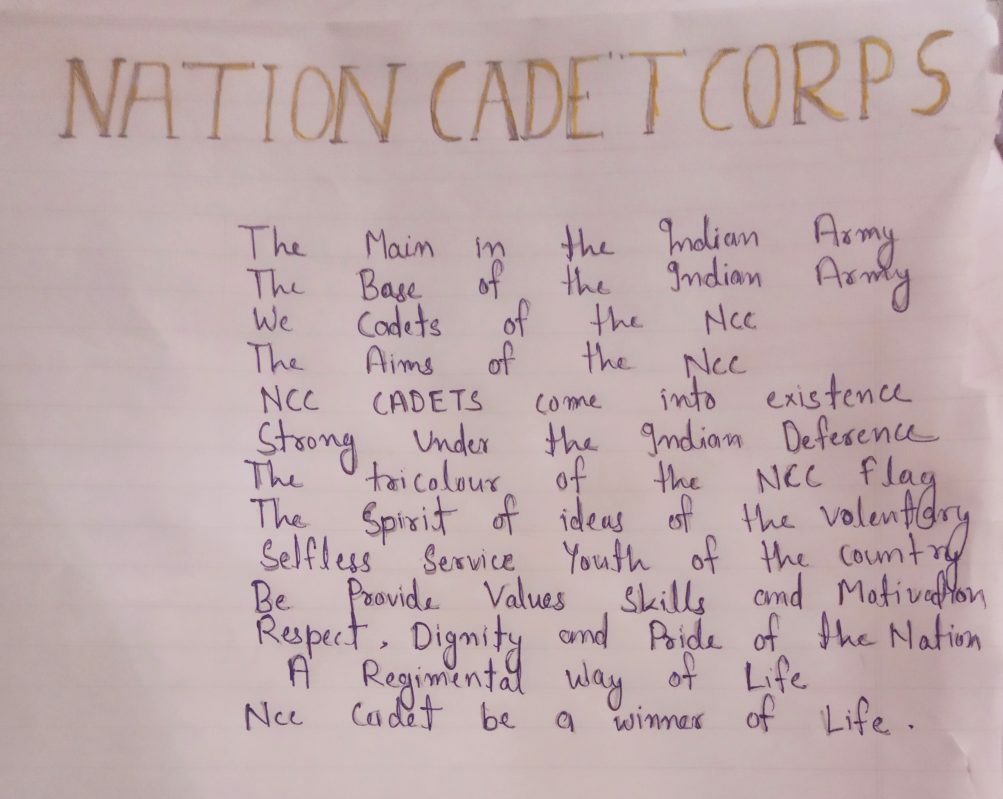 NATION CADET CORPS
The Main in the Indian Army
The Base of the Indian Army
We Cadets of the NCC
The Aims of the NCC
NCC CADETS come into existence
Strong Under the Indian Deference
The tricolour of the NCC flag
The Spirit of ideas of the volentary
Selfless Service Youth of the country
Be Provide Values Skills and Motivation
Respect, Dignity and Pride of the Nation
A Regimental way of Life
NCC Cadet be a winner of Life.